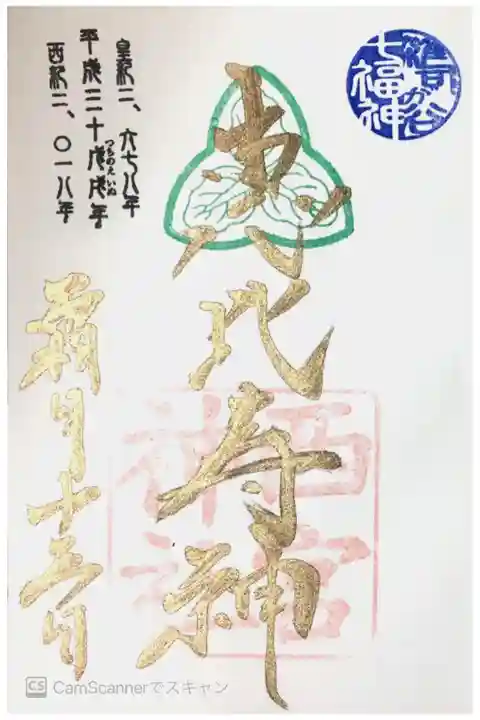 雑司が谷
七福神
恵比寿神
西宮
神社
皇紀二、六七八年
平成三十戊戌年
つちのえいぬ
西紀二、〇一八年
霜月十五日
CS CamScannerでスキャン